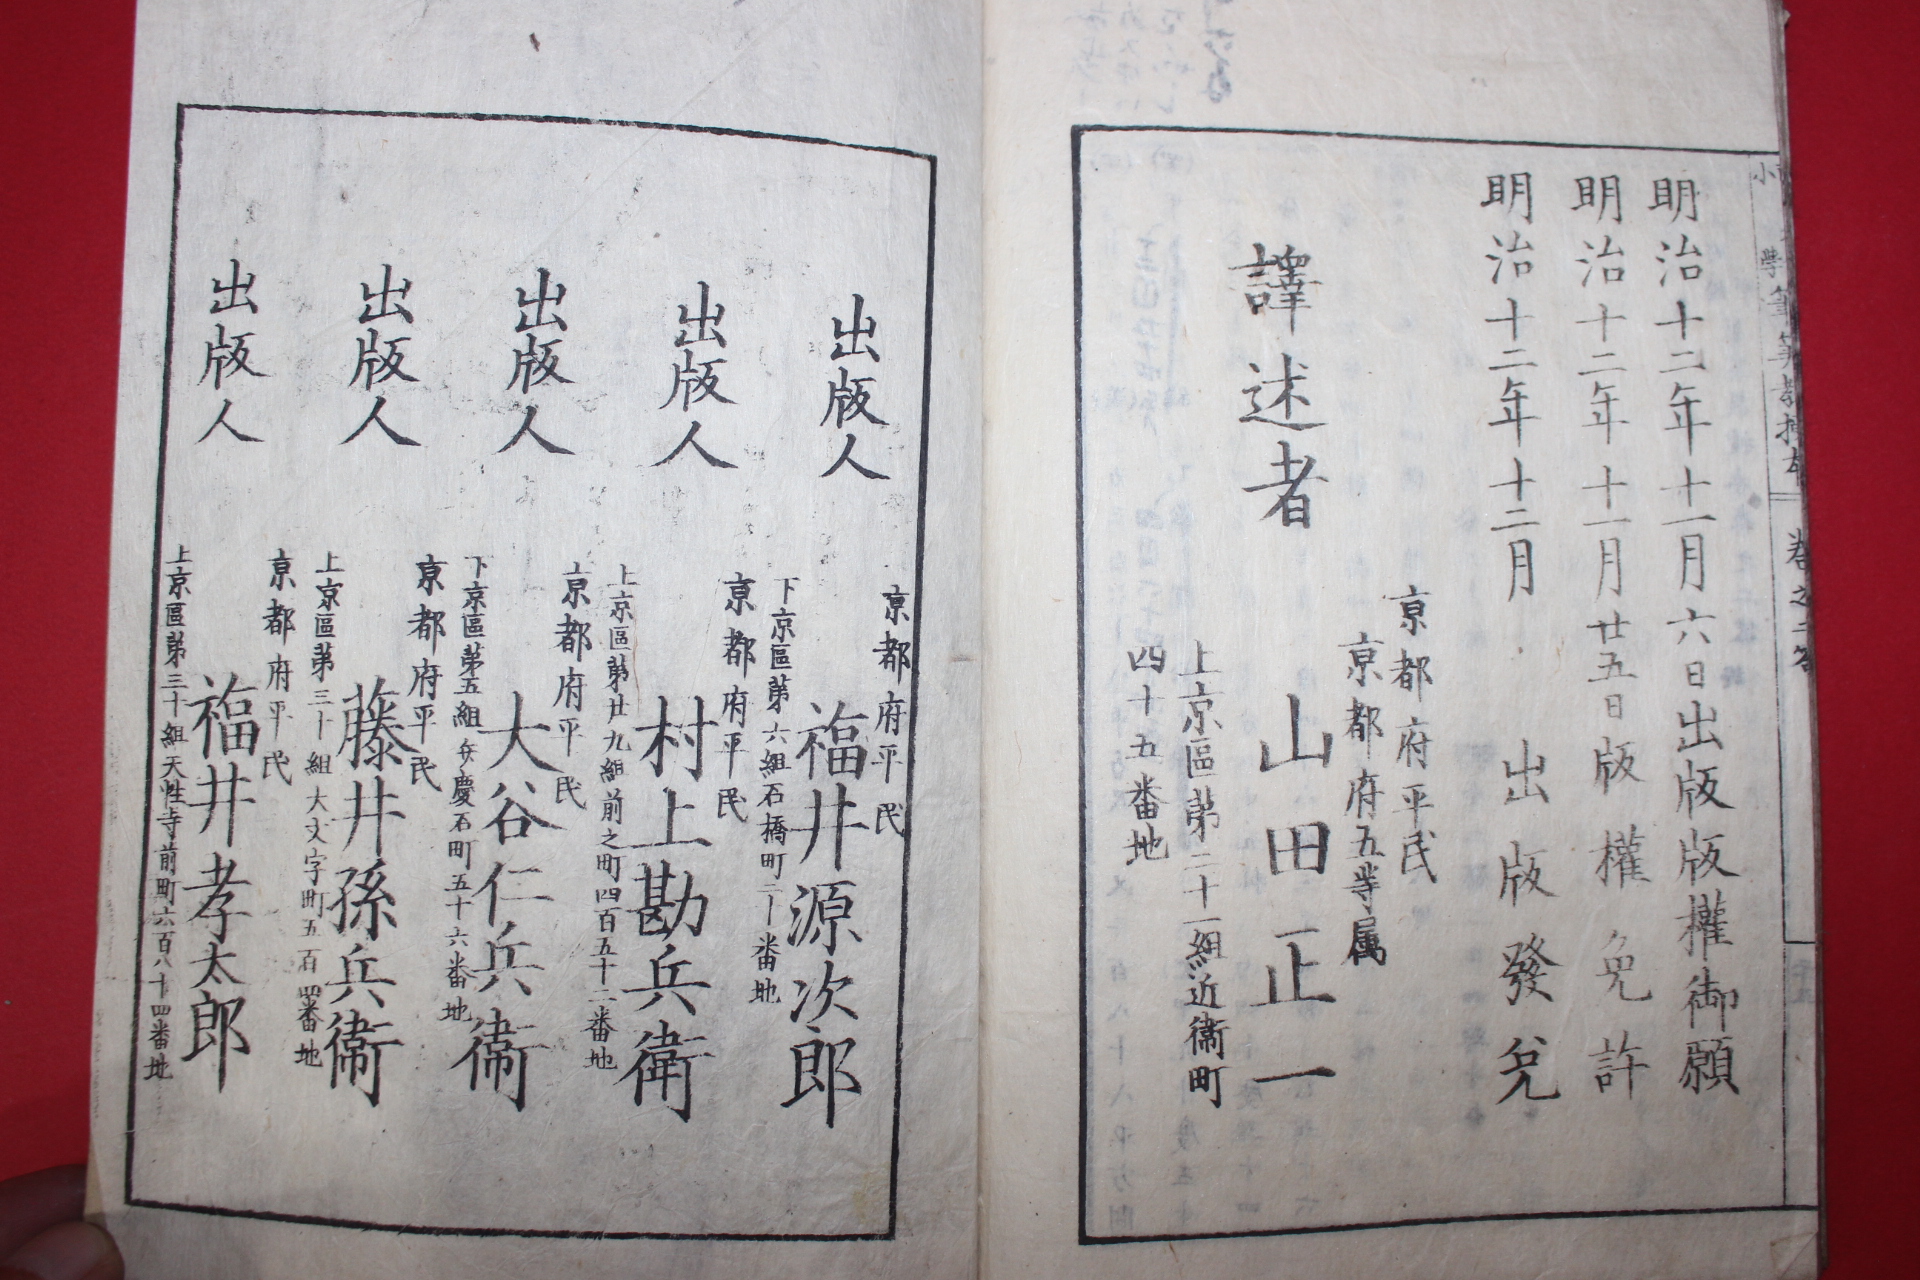 明治十二年十一月六日出版版權御願
明治十二年十一月廿五日版權免許
明治十二年十二月 出版發兌
京都府平民
京都府五等属
譯述者 山田正一
上京區第二十一組近衞町
四十五番地
京都府平民
出版人 福井源次郎
下京區第六組石橋町二十番地
京都府平民
出版人 村上勘兵衛
上京區第廿九組前之町四百五十二番地
京都府平民
出版人 大谷仁兵衞
下京區第五組弁慶石町五十六番地
京都府平民
出版人 藤井孫兵衞
上京區第三十組大文字町五百四番地
京都府平民
出版人 福井孝太郎
上京區第三十組天性寺前町六百八十四番地